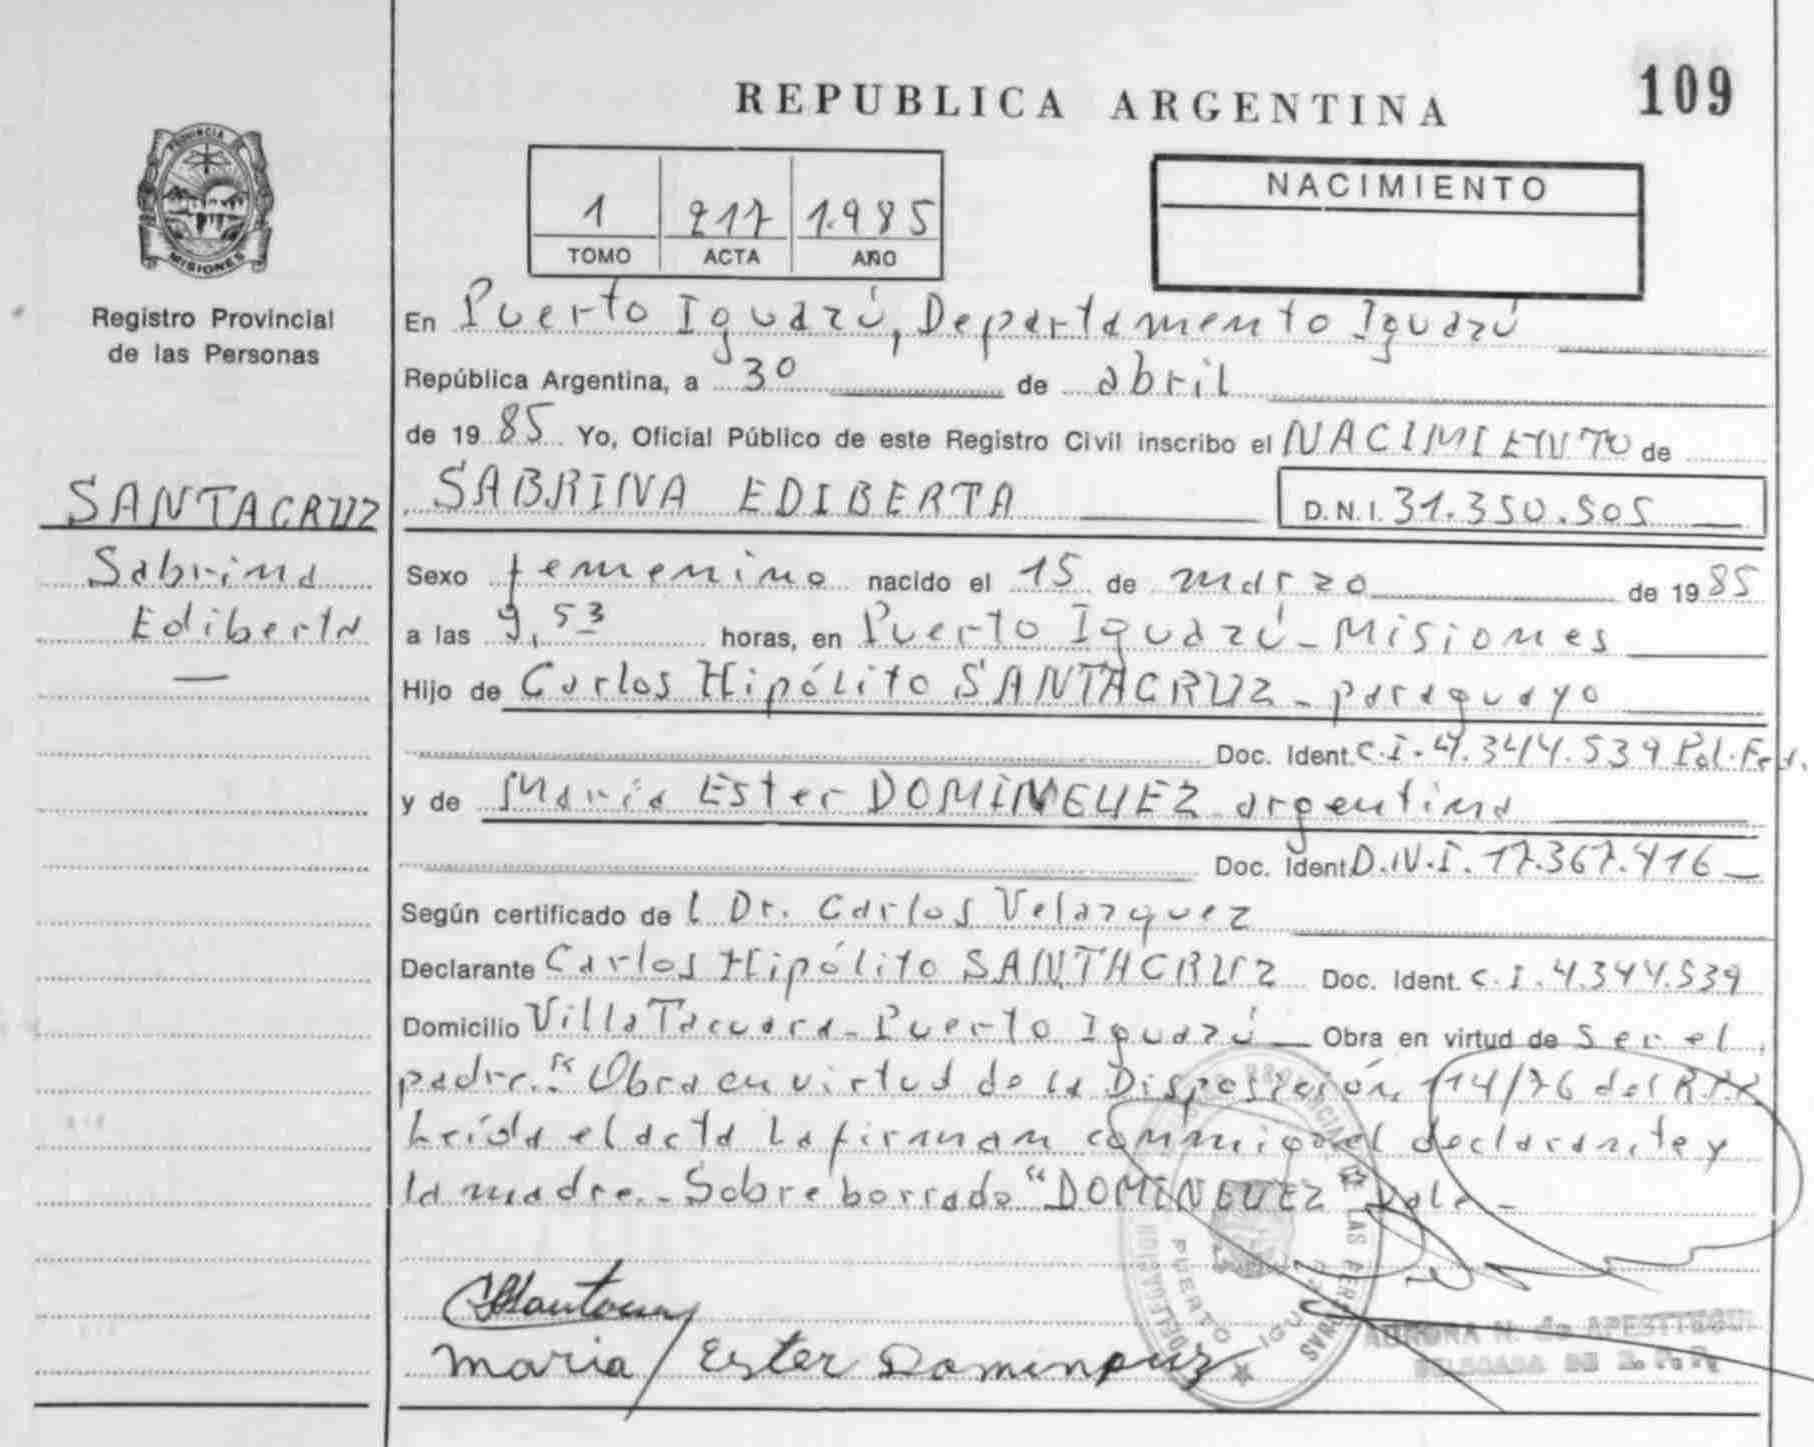 109
REPUBLICA ARGENTINA
PROVINCIA
MISIONES
Registro Provincial
de las Personas
1 217 1.985
TOMO ACTA AÑO
NACIMIENTO
En Puerto Iguazú, Departamento Iguazú
República Argentina, a 30 de abril
de 19 85 Yo, Oficial Público de este Registro Civil inscribo el NACIMIENTO de
SANTACRUZ
Sabrina
Ediberta
SABRINA EDIBERTA D.N.I. 31.350.505
Sexo femenino nacido el 15 de marzo de 19 85
a las 9,53 horas, en Puerto Iguazú - Misiones
Hijo de Carlos Hipólito SANTACRUZ - paraguayo
Doc. Ident. C.I. 4.344.539 Pol. Fed.
y de María Ester DOMINGUEZ - argentina
Doc. Ident. D.N.I. 17.367.416
Según certificado de l Dr. Carlos Velazquez
Declarante Carlos Hipólito SANTACRUZ Doc. Ident. C.I. 4.344.539
Domicilio Villa Tacuara - Puerto Iguazú Obra en virtud de ser el
padre. "Obra en virtud de la Disposición 114/76 del R.P.P.
Leída el acta la firman conmigo el declarante y
la madre. - Sobre borrado "DOMINGUEZ Vale -
PUERTO IGUAZU
DE LAS PERSONAS
Maria Ester Dominguez
DELEGADA DE R.P.P.